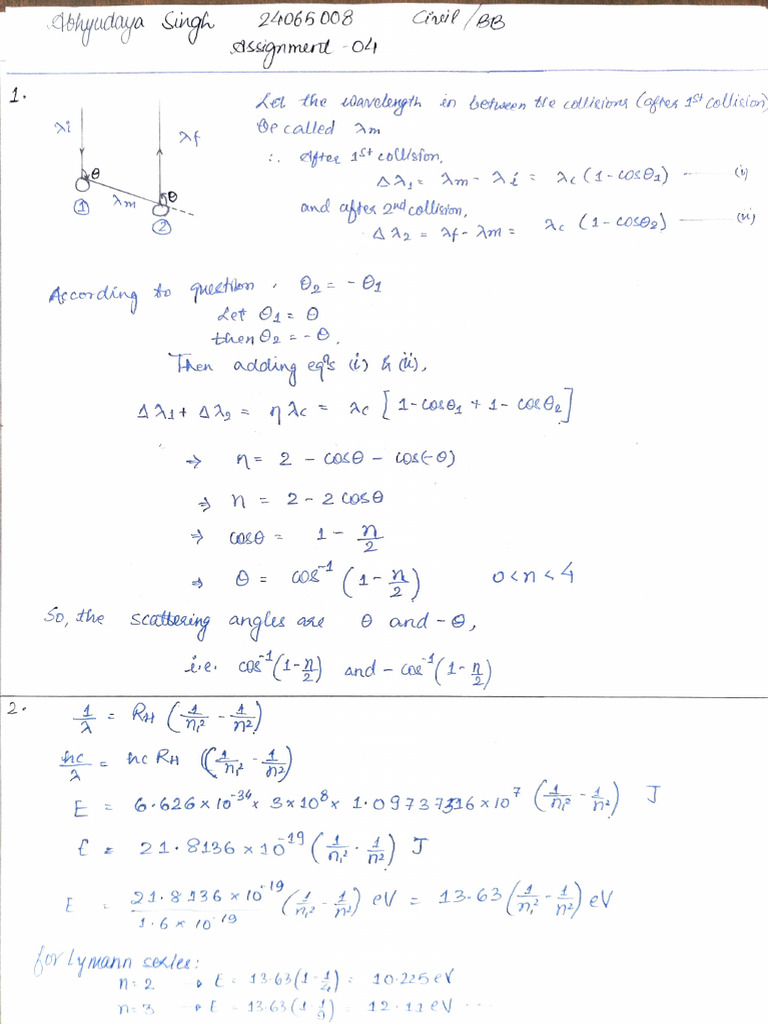 Abhyudaya Singh 24065008 Civil/BB
Assignment-04
1.
λi λf θ θ λm ① ②
Let the wavelength in between the collisions (after 1st collision)
be called λm
∴ After 1st collision,
Δλ1 = λm - λi = λc (1-cosθ1) — (i)
and after 2nd collision,
Δλ2 = λf - λm = λc (1-cosθ2) — (ii)
According to question, θ2 = -θ1
Let θ1 = θ
then θ2 = -θ.
Then adding eqns (i) & (ii),
Δλ1 + Δλ2 = ηλc = λc [1-cosθ1 + 1-cosθ2]
⇒ η = 2 - cosθ - cos(-θ)
⇒ n = 2 - 2cosθ
⇒ cosθ = 1 - n/2
⇒ θ = cos⁻¹ (1 - n/2) 0<n<4
So, the scattering angles are θ and -θ,
i.e. cos⁻¹(1-n/2) and -cos⁻¹(1-n/2)
2.
1/λ = RH (1/n₁² - 1/n²)
hc/λ = hc RH (1/n₁² - 1/n²)
E = 6.626×10⁻³⁴ × 3×10⁸ × 1.09737316×10⁷ (1/n₁² - 1/n²) J
E = 21.8136×10⁻¹⁹ (1/n₁² - 1/n²) J
E = 21.8136×10⁻¹⁹/1.6×10⁻¹⁹ (1/n₁² - 1/n²) eV = 13.63 (1/n₁² - 1/n²) eV
for Lymann series:
n=2 → E = 13.63(1-1/4) = 10.225 eV
n=3 → E = 13.63(1-1/9) = 12.11 eV ...